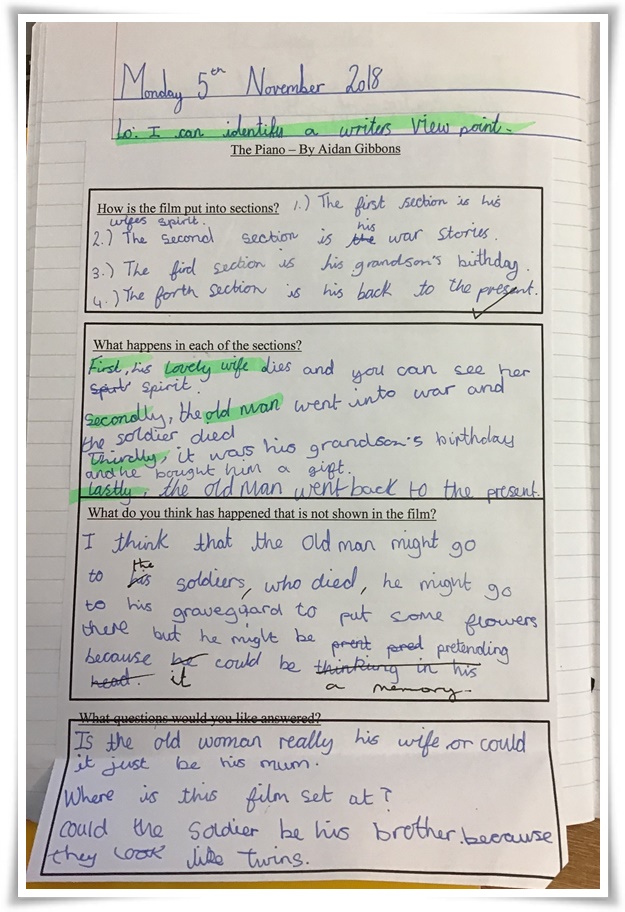 Monday 5th November 2018
Lo: I can identify a writers view point.
The Piano – By Aidan Gibbons
How is the film put into sections? 1.) The first section is his
wifes spirit.
2.) The second section is the his war stories.
3.) The fird section is his grandson's birthday.
4.) The forth section is his back to the present.
What happens in each of the sections?
First, his lovely wife dies and you can see her
spirit.
Secondly, the old man went into war and
the soldier died
Thirdly, it was his grandson's birthday
and he bought him a gift.
Lastly, the old man went back to the present.
What do you think has happened that is not shown in the film?
I think that the old man might go
to his the soldiers, who died, he might go
to his graveyard to put some flowers
there but he might be pretending
because he it could be thinking in his
head. a memory.
What questions would you like answered?
Is the old woman really his wife or could
it just be his mum.
Where is this film set at?
could the soldier be his brother. because
they look like twins.